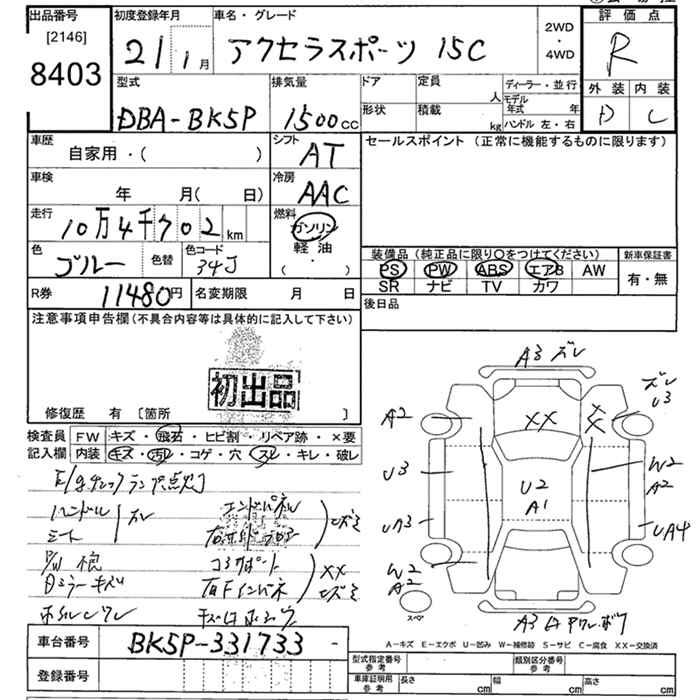 出品番号
[2146]
8403
初度登録年月
21 1月
車名・グレード
アクセラスポーツ 15C
2WD
・
4WD
評価点
R
外装 内装
D C
型式
DBA-BK5P
排気量
1500cc
ドア
形状
定員
人
積載
kg
ディーラー・並行
モデル年式 年
ハンドル 左・右
車歴
自家用・( )
シフト
AT
セールスポイント(正常に機能するものに限ります)
車検
年 月( 日)
冷房
AAC
走行
10万4千702km
燃料
ガソリン
軽油
( ・ )
色
ブルー
色替
色コード
34J
装備品(純正品に限り〇をつけてください)
PS PW ABS エアB AW
SR ナビ TV カワ
新車保証書
有・無
R券
11480円
名変期限 月 日
後日品
注意事項申告欄(不具合内容等は具体的に記入して下さい)
初出品
修復歴 有 [箇所 ]
検査員
記入欄
FW キズ・飛石・ヒビ割・リペア跡・×要
内装 キズ・汚レ・コゲ・穴・スレ・キレ・破レ
E/gチェックランプ点灯
ハンドル
シート
スレ
エンドパネル
コアサポート
右Fインパネ
XX
A3 ズレ
ズレ
U3
A2
XX
XX
U3
W2
A2
U2
A1
UA4
W2
A2
スペア
A-キズ E-エクボ U-凹み W-補修跡 S-サビ C-腐食 XX-交換済
車台番号
BK5P-331733-
登録番号
型式指定番号
参考
類別区分番号
参考
車庫証明用
参考
長さ cm 幅 cm 高さ cm